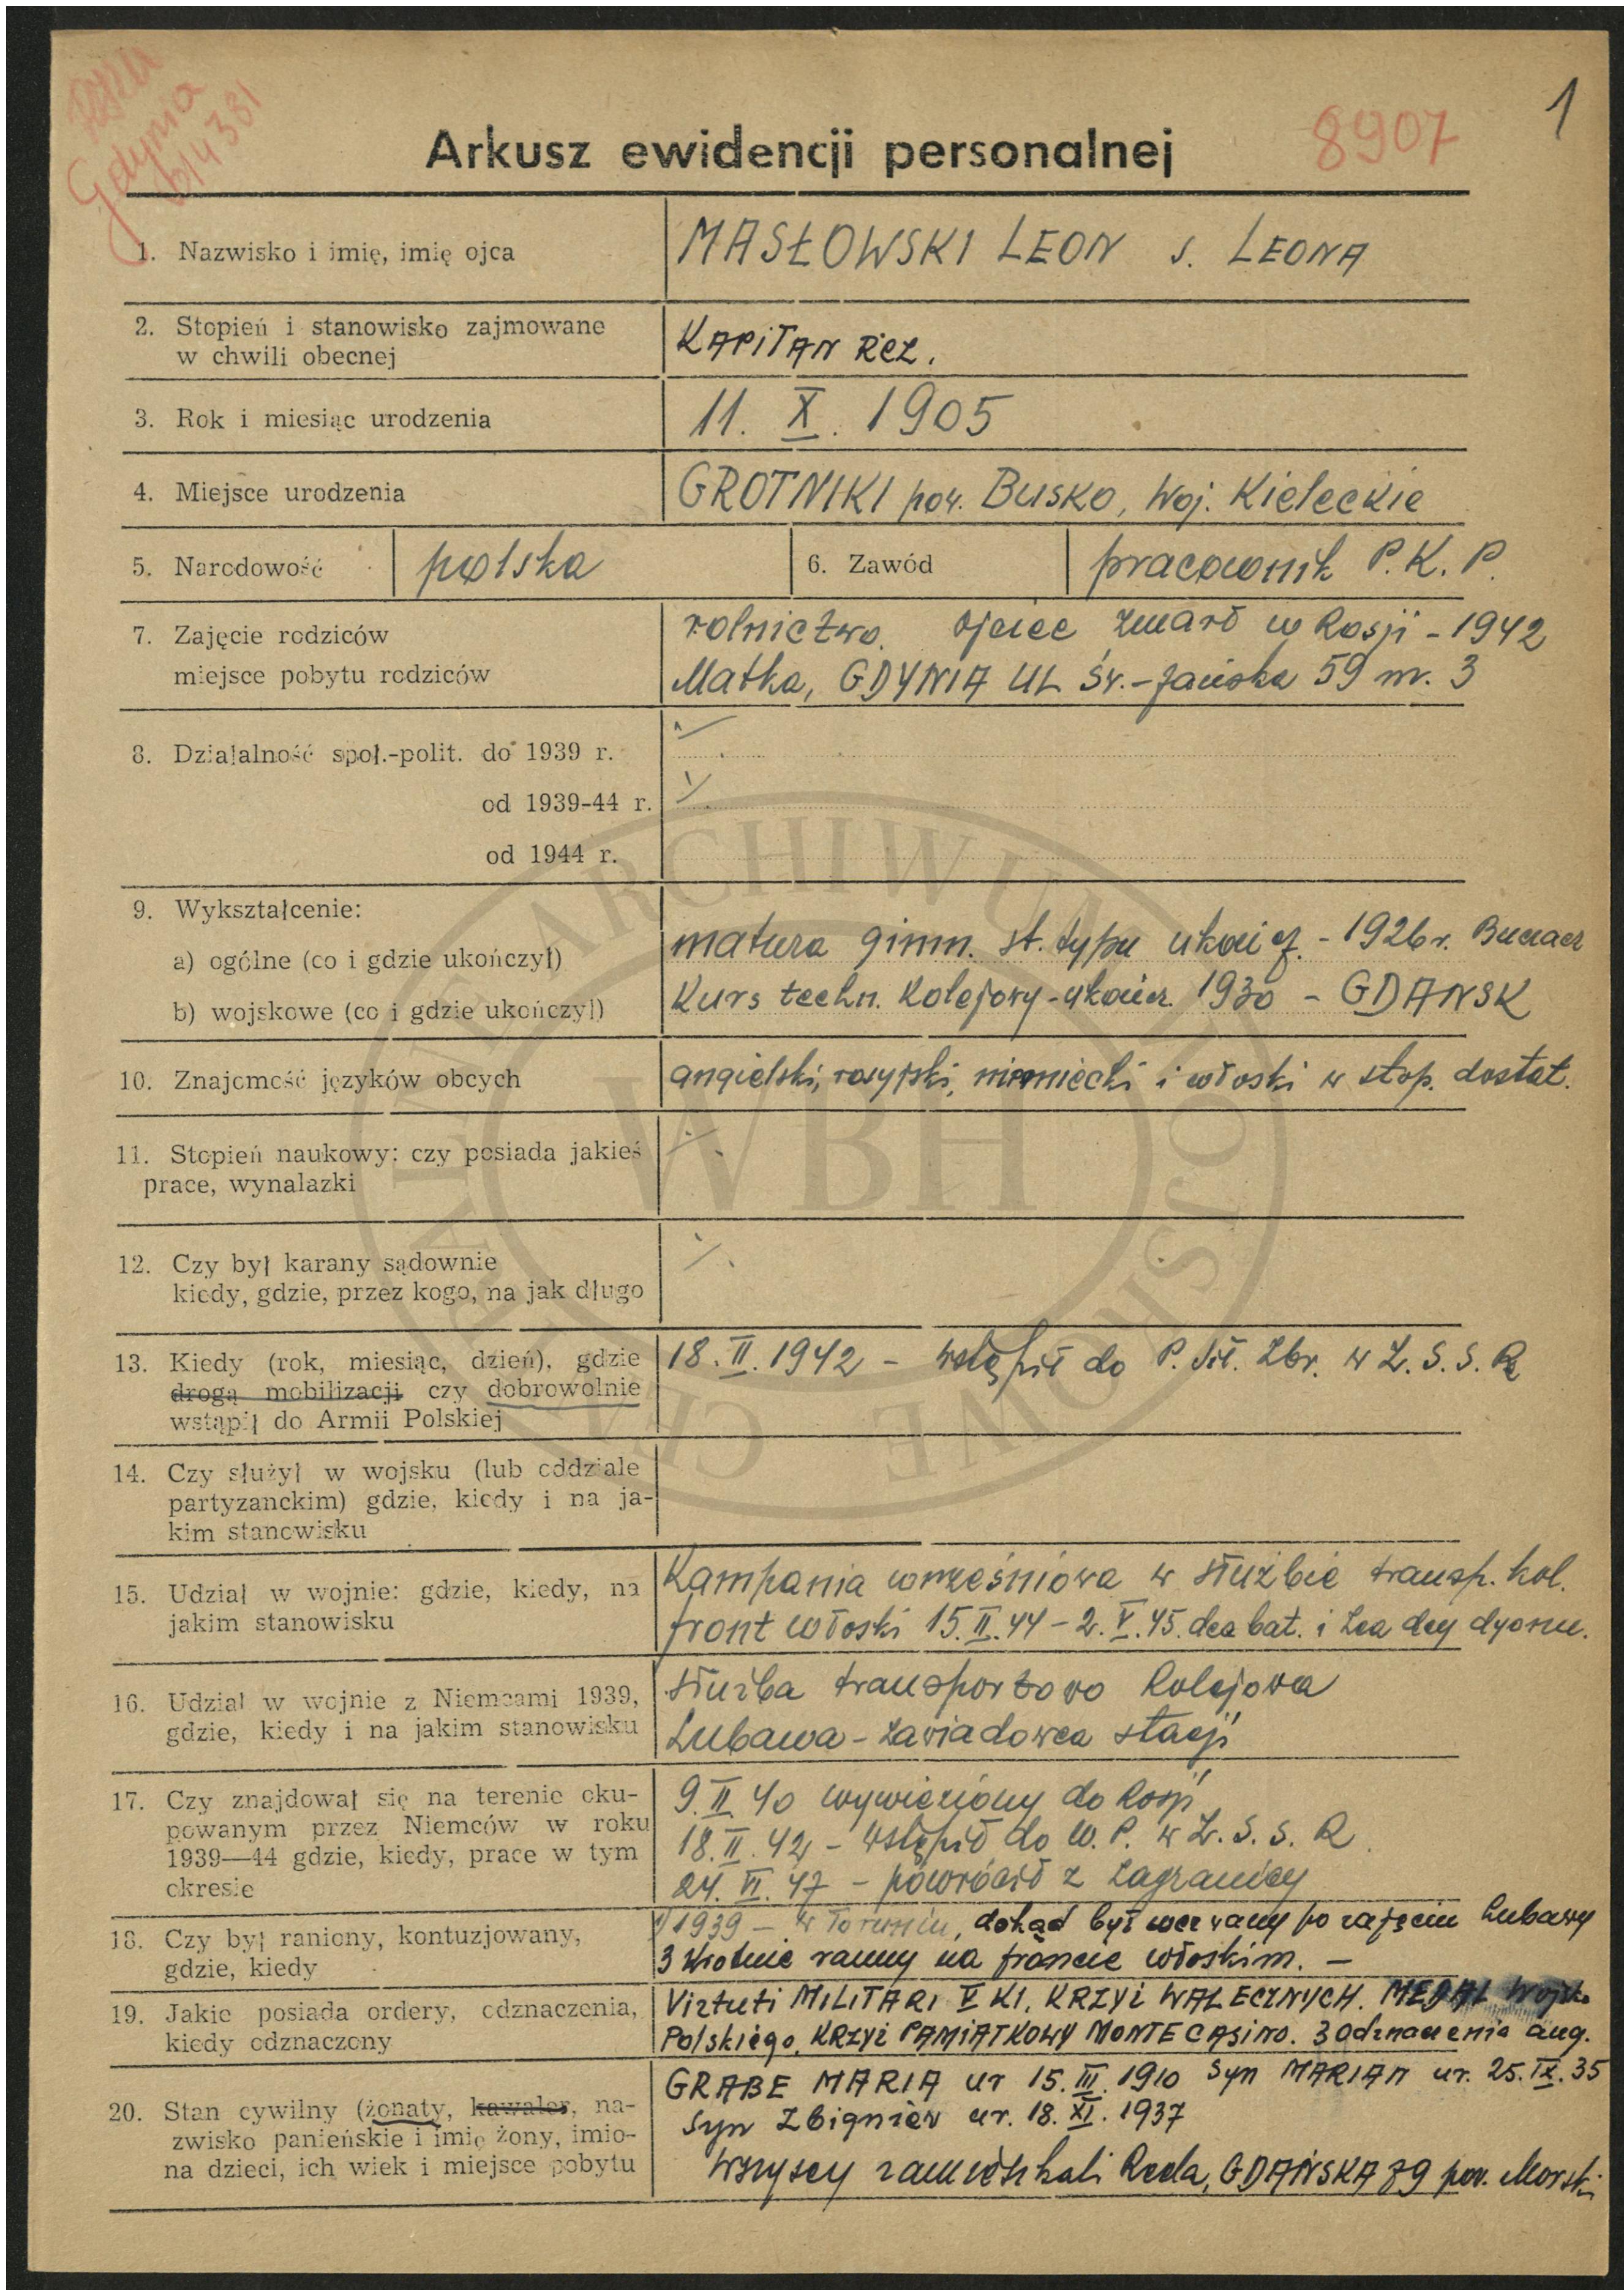 Gdynia
b/4381
8907
1
Arkusz ewidencji personalnej
1. Nazwisko i imię, imię ojca
MASŁOWSKI LEON s. LEONA
2. Stopień i stanowisko zajmowane
w chwili obecnej
KAPITAN REZ.
3. Rok i miesiąc urodzenia
11. X. 1905
4. Miejsce urodzenia
GROTNIKI pow. BUSKO, Woj. Kieleckie
5. Narodowość polska 6. Zawód pracownik P.K.P.
7. Zajęcie rodziców
rolnictwo. ojciec zmarł w Rosji - 1942
miejsce pobytu rodziców
Matka, GDYNIA UL Św.-Jańska 59 m. 3
8. Działalność społ.-polit. do 1939 r.
od 1939-44 r.
od 1944 r.
9. Wykształcenie:
a) ogólne (co i gdzie ukończył)
matura gimn. st. typu ukończ. - 1926 r. Buczacz
b) wojskowe (co i gdzie ukończył)
Kurs techn. Kolejowy - ukończ. 1930 - GDAŃSK
10. Znajomość języków obcych
angielski, rosyjski, niemiecki i włoski w stop. dostat.
11. Stopień naukowy: czy posiada jakieś
prace, wynalazki
12. Czy był karany sądownie
kiedy, gdzie, przez kogo, na jak długo
13. Kiedy (rok, miesiąc, dzień), gdzie
drogą mobilizacji czy dobrowolnie
wstąpił do Armii Polskiej
18. II. 1942 - wstąpił do P. Sił. Zbr. w Z.S.S.R
14. Czy służył w wojsku (lub oddziale
partyzanckim) gdzie, kiedy i na ja-
kim stanowisku
15. Udział w wojnie: gdzie, kiedy, na
jakim stanowisku
Kampania wrześniowa w służbie transp. kol.
front włoski 15.II.44 - 2.V.45. dca bat. i zca dcy dyonu.
16. Udział w wojnie z Niemcami 1939,
gdzie, kiedy i na jakim stanowisku
służba transportowo Kolejowa
Lubawa - zawiadowca stacji
17. Czy znajdował się na terenie oku-
powanym przez Niemców w roku
1939—44 gdzie, kiedy, prace w tym
okresie
9. II 40 wywieziony do Rosji
18. II. 42 - wstąpił do W.P. w Z.S.S.R.
24. VI. 47 - powrócił z zagranicy
18. Czy był raniony, kontuzjowany,
gdzie, kiedy
1939 - w Toruniu, dokąd był wezwany po zajęciu Lubawy
3 krotnie ranny na froncie włoskim. -
19. Jakie posiada ordery, odznaczenia,
kiedy odznaczony
Virtuti MILITARI V Kl. KRZYŻ WALECZNYCH. MEDAL Wojska
Polskiego, KRZYŻ PAMIĄTKOWY MONTE CASINO. 3 odznaczenia ang.
20. Stan cywilny (żonaty, kawaler, na-
zwisko panieńskie i imię żony, imio-
na dzieci, ich wiek i miejsce pobytu
GRABE MARIA ur 15. III. 1910 syn MARIAN ur. 25. IX. 35
syn Zbigniew ur. 18. XI. 1937
Wszyscy zamieszkali Reda, GDAŃSKA 79 pow. Morski
CENTRALNE ARCHIWUM WOJSKOWE
WBH